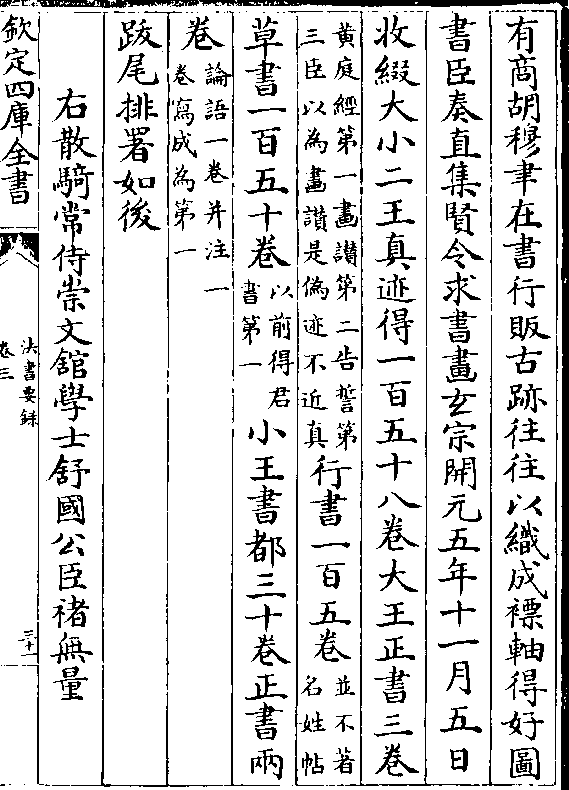 有商胡穆聿在書行販古跡往往以織成褾軸得好圖
書臣奏直集賢令求書畫玄宗開元五年十一月五日
收綴大小二王真迹得一百五十八卷大王正書三卷
黃庭經第一畫讃第二告誓第
三臣以為畫讃是偽迹不近真
行書一百五卷
並不著
名姓帖
草書一百五十卷
以前得君
書第一
小王書都三十卷正書兩
卷
論語一卷并注一
卷寫成為第一
跋尾排署如後
右散騎常侍崇文舘學士舒國公臣褚無量
欽定四庫全書
法書要録
卷三
三十一